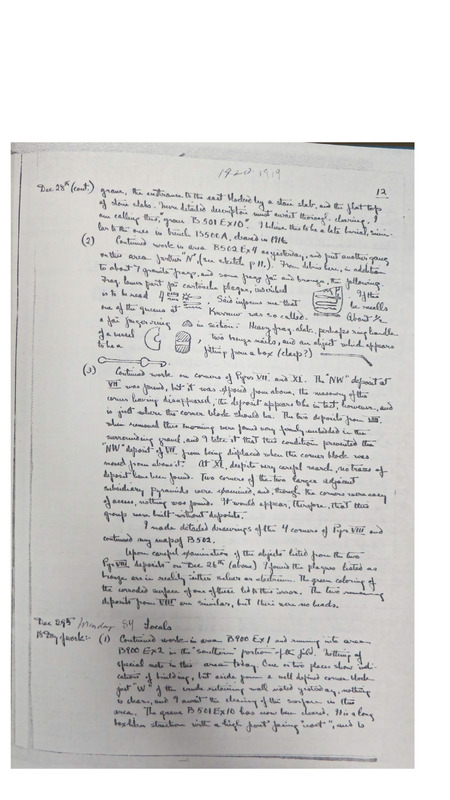 1920. 1919
12
Dec 28th (cont.) grave, the entrance to the east blocked by a stone slab, and the flat tops
of stone slabs. More detailed description must await thorough clearing. I
am calling this "grave B 501 Ex 10". I believe this to be a late burial, simi-
lar to the ones in trench B500A, cleared in 1916.
(2) Continued work in area B502 Ex 4 as yesterday, and put another gang
on this area further "N", (see sketch p 11.). From debris here, in addition
to about 7 granite frags, and some frags fai and bronze, the following
Frag. lower part fai cartouche plaque, inscribed
is to be read Said informs me that If this
one of the queens at Kurruw was so called. be recalls
a fai finger-ring in section: Heavy frag. slate, perhaps ring handle About 1/2
of a vessel , two bronze nails, and an object which appears
to be a fitting from a box (clasp?)
(3) Continued work on corners of Pyrs VII. and XI. The "NW" deposit at
VII was found, but it was exposed from above, the masonry of the
corner having disappeared, the deposit appears to be in tact, however, and
is just where the corner block should be. The two deposits from VIII.
when removed this morning were found very firmly embedded in the
surrounding ground, and I take it that this condition prevented the
"NW" deposit of VII. from being displaced when the corner block was
moved from above it. At XI, despite very careful search, no traces of
deposit have been found. Two corners of the two larger adjacent
subsidiary pyramids were examined, and, though the corners were easy
of access, nothing was found. It would appear, therefore, that this
group were built without deposits.
I made detailed drawings of the 4 corners of Pyr VIII and
continued my map of B 502.
Upon careful examination of the objects listed from the two
Pyr VIII. deposits on Dec 26th (above) I found the plaques listed as
bronze are in reality either silver or electrum. The green coloring of
the corroded surface of one of these led to this error. The two remaining
deposits from VIII are similar, but there were no beads.
Dec 29th / Monday 84 Locals
Day of work:- (1) Continued work in area B900 Ex 1 and running into area
B900 Ex 2 in the "southern" portion of the field. Nothing of
special note in this area today. One or two places show indi-
cations of building, but aside from a well defined corner block
just "W" of the crude retaining wall noted yesterday, nothing
is clear, and I await the clearing of the surface in this
area. The grave B 501 Ex 10 has now been cleared. It is a long
box-like structure with a high "front" facing "east", and is